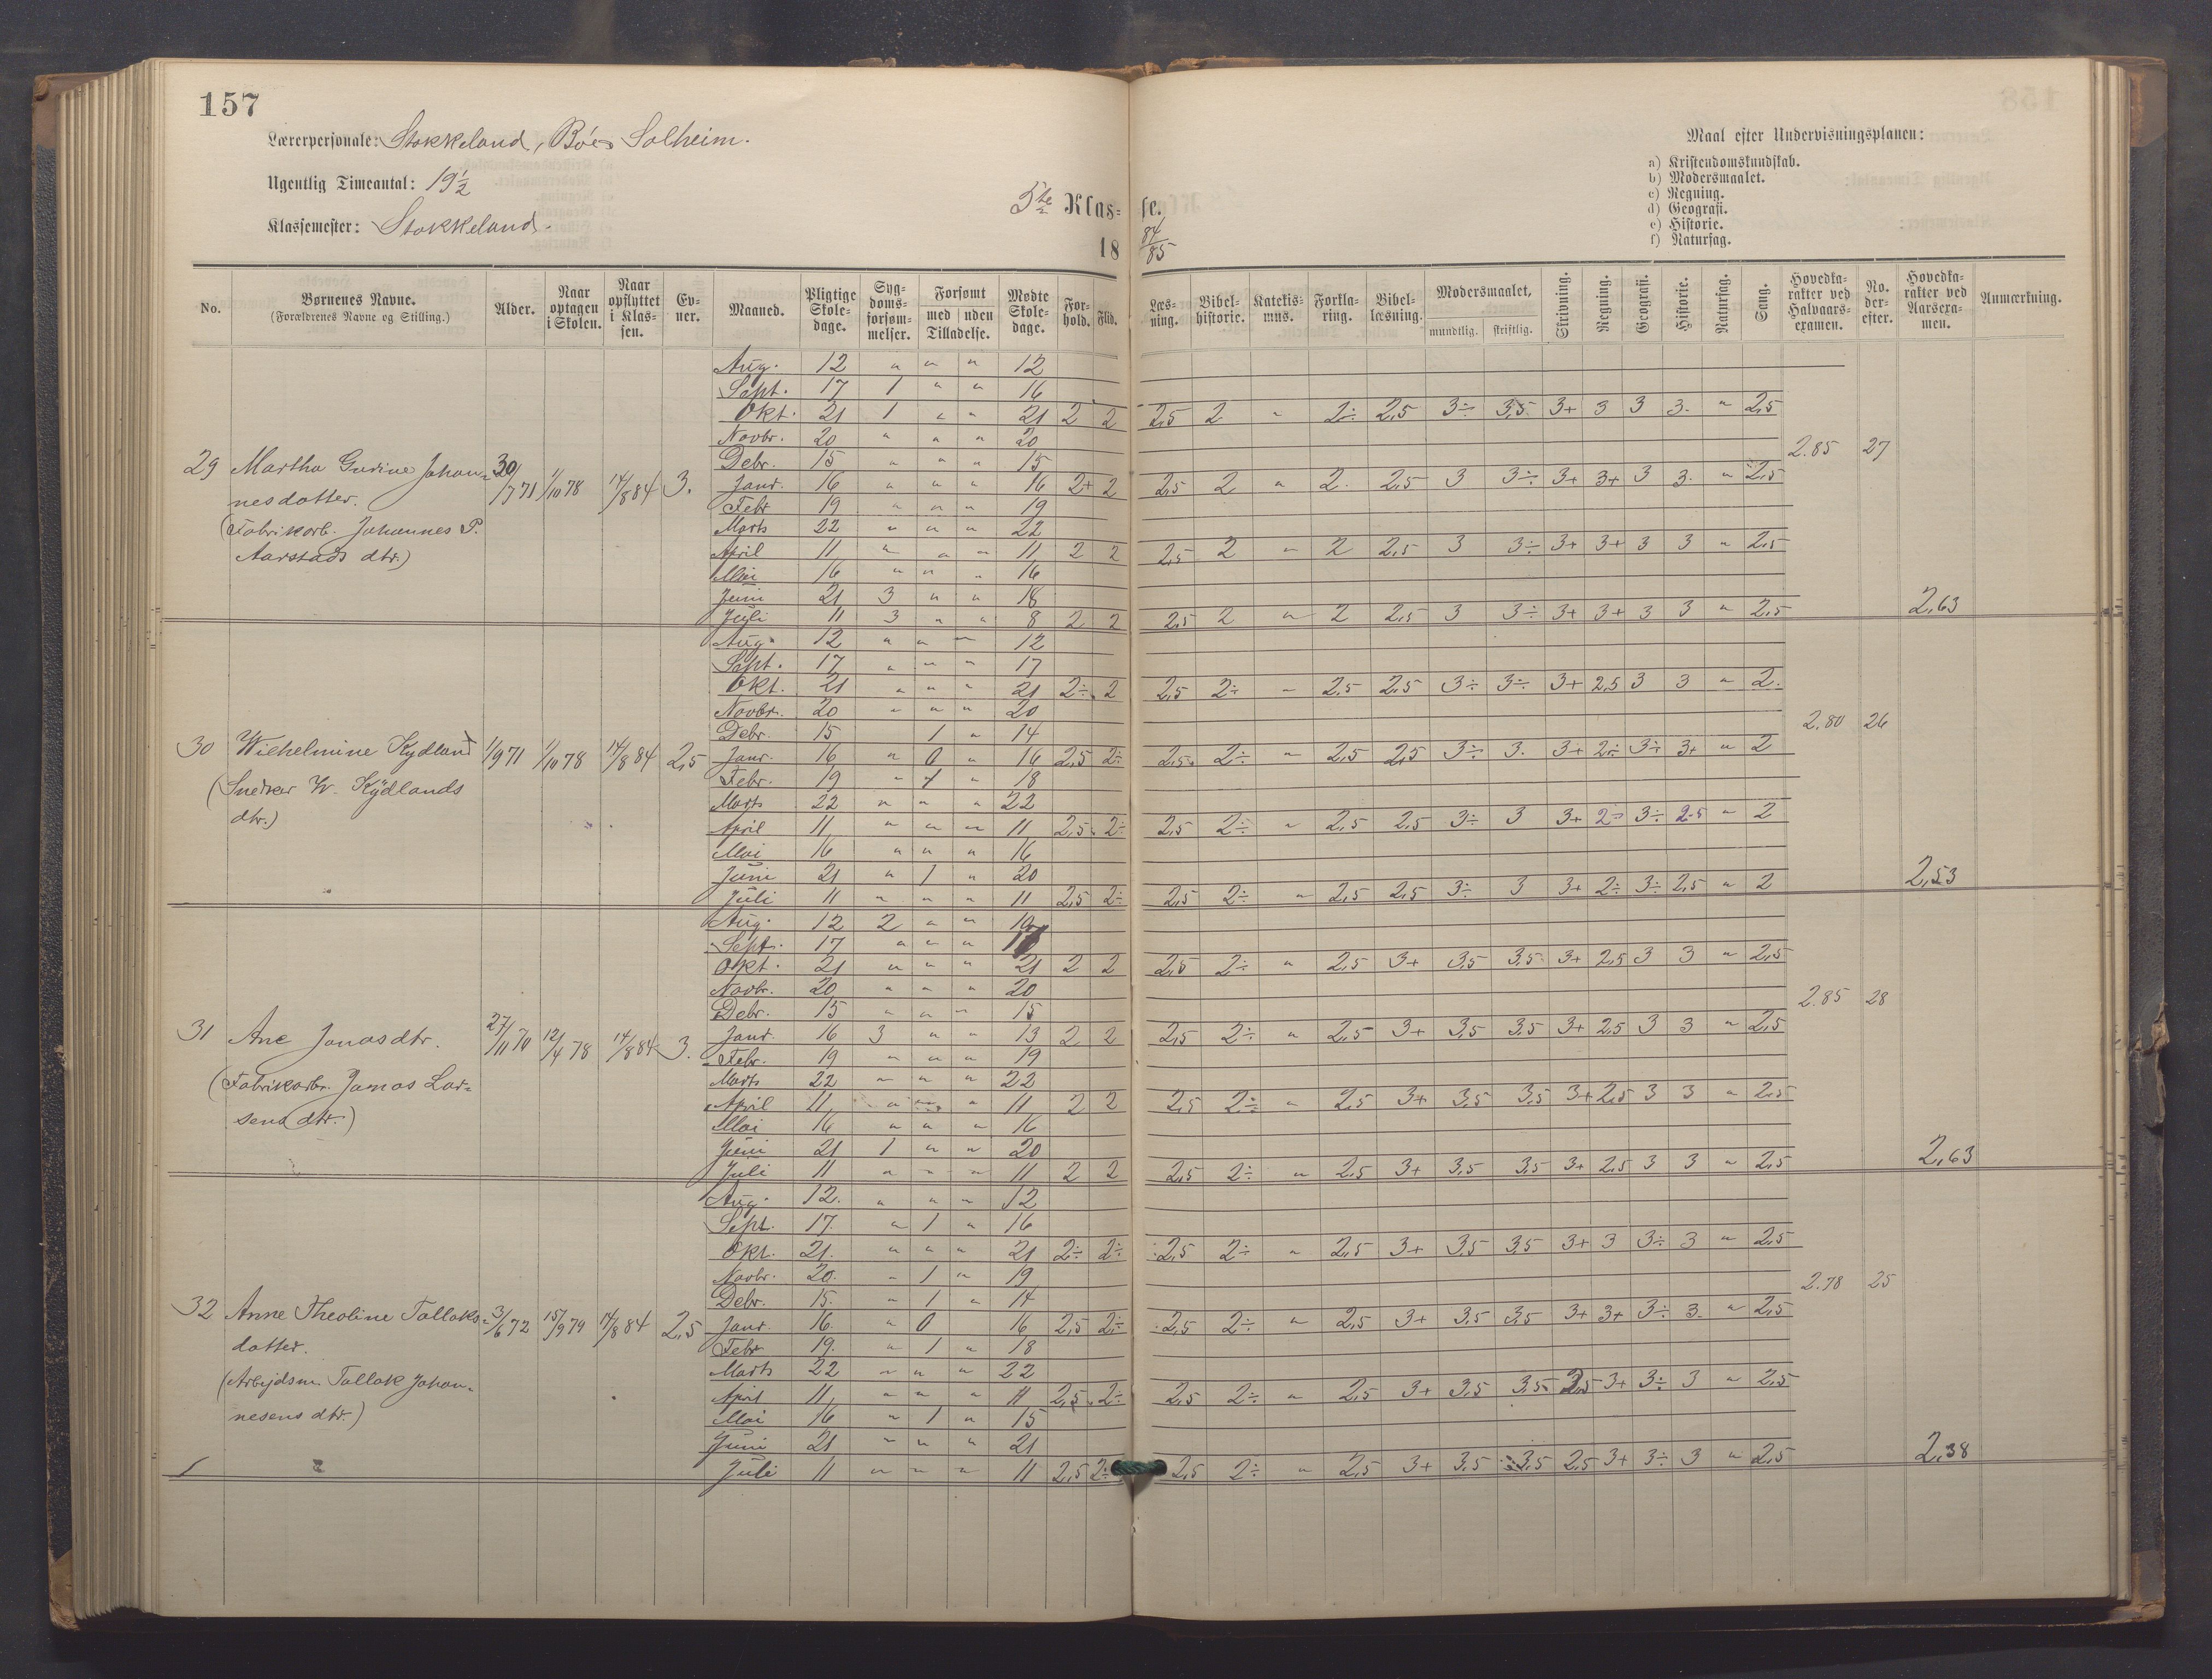 157
Lærerpersonale: Stokkeland, Bóes Solheim.
Ugentlig Timeantal: 19 1/2
Klassemester: Stokkeland.
5te Klas- se.
18 84/85
Maal efter Undervisningsplanen:
a) Kristendomskundskab.
b) Modersmaalet.
c) Regning.
d) Geografi.
e) Historie.
f) Naturfag.
No. | Børnenes Navne. (Forældrenes Navne og Stilling.) | Alder. | Naar optagen i Skolen. | Naar opflyttet i Klas- sen. | Ev- ner. | Maaned. | Pligtige Skole- dage. | Syg- doms- forsøm- melser. | Forsømt med uden Tilladelse. | Mødte Skole- dage. | For- hold. | Flid. | Læs- ning. | Bibel- historie. | Katekis- mus. | Forkla- ring. | Bibel- læsning. | Modersmaalet, mundtlig. skriftlig. | Skrivning. | Regning. | Geografi. | Historie. | Naturfag. | Sang. | Hovedka- rakter ved Halvaars- examen. | No. der- efter. | Hovedka- rakter ved Aarsexa- men. | Anmærkning.
Aug. 12 " " " 12
Sept. 17 1 " " 16
Okt. 21 1 " " 21 2 2 2,5 2 " 2÷ 2,5 3÷ 3,5 3+ 3 3 3. " 2,5
Novbr. 20 " " " 20
Debr. 15 " " " 15 2.85 27
29 Martha Gurine Johan- 30/7 71 1/10 78 14/8 84 3. Janr. 16 " " " 16 2+ 2 2,5 2 " 2. 2,5 3 3÷ 3+ 3+ 3 3. " 2,5
nesdotter. Febr 19 " " " 19
(Fabrikarb. Johannes P. Marts 22 " " " 22
Aarstads dtr.) April 11 " " " 11 2 2 2,5 2 " 2 2,5 3 3÷ 3+ 3+ 3 3 " 2,5
Mai 16 " " " 16
Juni 21 3 " " 18
Juli 11 3 " " 8 2 2 2,5 2 " 2 2,5 3 3÷ 3+ 3+ 3 3 " 2,5 2,63
Aug. 12 " " " 12
Sept. 17 " " " 17
Okt. 21 " " " 21 2÷ 2 2,5 2÷ " 2,5 2,5 3÷ 3÷ 3+ 2,5 3 3 " 2.
Novbr. 20 " " " 20
Debr. 15 1 " 14 2.80 26
30 Wilhelmine Kydland 1/9 71 1/10 78 14/8 84 2,5 Janr. 16 " 0 " 16 2,5 2÷ 2,5 2÷ " 2,5 2,5 3÷ 3. 3+ 2÷ 3÷ 3+ " 2
(Snedker W. Kydlands Febr. 19 " 1 " 18
dtr.) Marts 22 " " " 22
April 11 " " " 11 2,5 2÷ 2,5 2÷ " 2,5 2,5 3÷ 3 3+ 2÷ 3÷ 2.5 " 2
Mai 16 " " " 16
Juni 21 " 1 " 20
Juli 11 " " " 11 2,5 2÷ 2,5 2÷ " 2,5 2,5 3÷ 3 3+ 2÷ 3÷ 2,5 " 2 2,53
Aug. 12 2 " " 10
Sept. 17 " " " 17
Okt. 21 " " " 21 2 2 2,5 2÷ " 2,5 3+ 3,5 3,5 3+ 2,5 3 3 " 2,5
Novbr. 20 " " " 20
Debr. 15 " " " 15 2.85 28
31 Ane Jonasdtr. 27/11 70 12/4 78 14/8 84 3. Janr. 16 3 " " 13 2 2 2,5 2÷ " 2,5 3+ 3,5 3,5 3+ 2,5 3 3 " 2,5
Febr. 19 " " " 19
(Fabrikarbr. Jonas Lar- Marts 22 " " " 22
sens dtr.) April 11 " " " 11 2 2 2,5 2÷ " 2,5 3+ 3,5 3,5 3+ 2,5 3 3 " 2,5
Mai 16 " " " 16
Juni 21 1 " " 20
Juli 11 " " " 11 2 2 2,5 2÷ " 2,5 3+ 3,5 3,5 3+ 2,5 3 3 " 2,5 2,63
Aug. 12. " " " 12
Sept. 17. " 1 " 16
Okt. 21. " " " 21 2÷ 2÷ 2,5 2÷ " 2,5 3+ 3,5 3,5 3+ 3 3÷ 3 " 2,5
Novbr. 20. " 1 " 19
Debr. 15. " 1 " 14 2.78 25
32 Anne Theoline Tollaks- 3/6 72 15/9 79 14/8 84 2,5 Janr. 16. " 0 16 2,5 2÷ 2,5 2÷ " 2,5 3+ 3,5 3,5 3+ 3+ 3÷ 3. " 2,5
dotter. Febr 19. " 1 " 18
(Arbejdsm. Tollak Johan- Marts 22 " " " 22
nesens dtr.) April 11 " " " 11 2,5 2÷ 2,5 2÷ " 2,5 3+ 3,5 3,5 2,5 3+ 3÷ 3 " 2,5
Mai 16 " 1 " 15
Juni 21 " " " 21
Juli 11 " " " 11 2,5 2÷ 2,5 2÷ " 2,5 3+ 3,5 3,5 2,5 3+ 3÷ 3 " 2,5 2,38